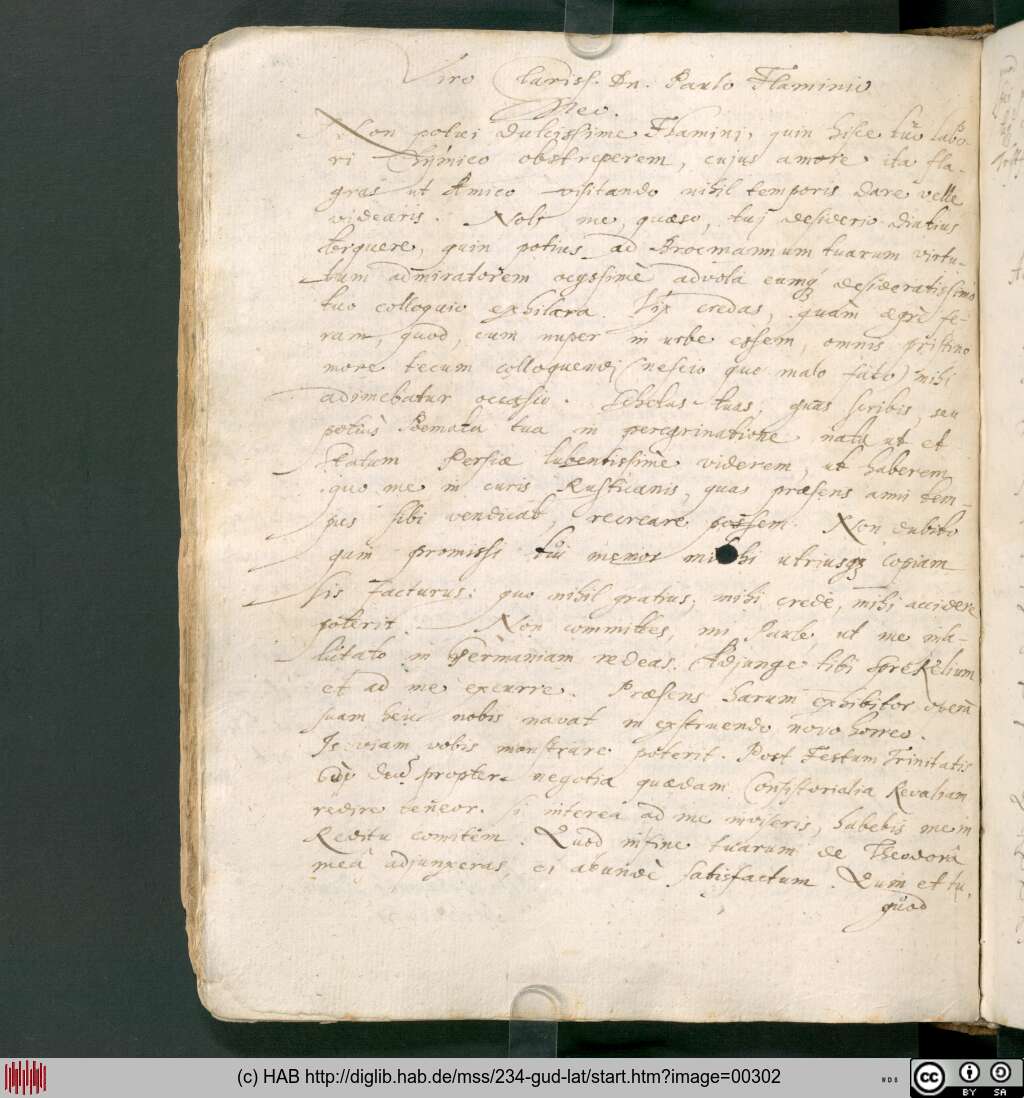 Viro Clariss. Dn. Paulo Flaminio
Meo.
Non potui dulcissime Flamini, quin hisce tuo labo-
ri Chymico obstreperem, cujus amore ita fla-
gras ut Amico visitando nihil temporis dare velle
videaris. Noli me, quæso, tuj desiderio diutius
torquere, quin potius ad Brocmannum tuarum virtu-
tum admiratorem ocyssimè advola eumq desideratissimo
tuo colloquio exhilara. Vix credas, quàm ægrè fe-
ram, quod, cum nuper in urbe essem, omnis pristino
more tecum colloquendi (nescio quo malo fato) mihi
adimebatur occasio. Scholas tuas, quas scribis, seu
potius Poemata tua in peregrinatione nata ut et
statum Persiæ lubentissimè viderem, ut haberem
quo me in curis Rusticanis, quas præsens anni tem-
pus sibi vendicat, recreare possem. Non dubito
quin promissi tui memor mihi utriusq copiam
sis facturus: quo nihil gratius, mihi crede, mihi accidere
poterit. Non committes, mi Paule, ut me insa-
lutato in Germaniam redeas. Adjunge tibi
et ad me excurre. Præsens harum exhibitor operā
suam heic nobis navat in exstruendo novo horreo.
Is viam vobis monstrare poterit. Post Festum Trinitatis
propter negotia quædam Consistorialia Revaliam
redire teneor. Si interea ad me inviseris, habebis me in
Reditu comitem. Quod in fine tuarum de Theodorâ
meâ adjunxeras, ei abundè satisfactum. Qum et tu,
quod
(c) HAB http://diglib.hab.de/mss/234-gud-lat/start.htm?image=00302
cc BY SA